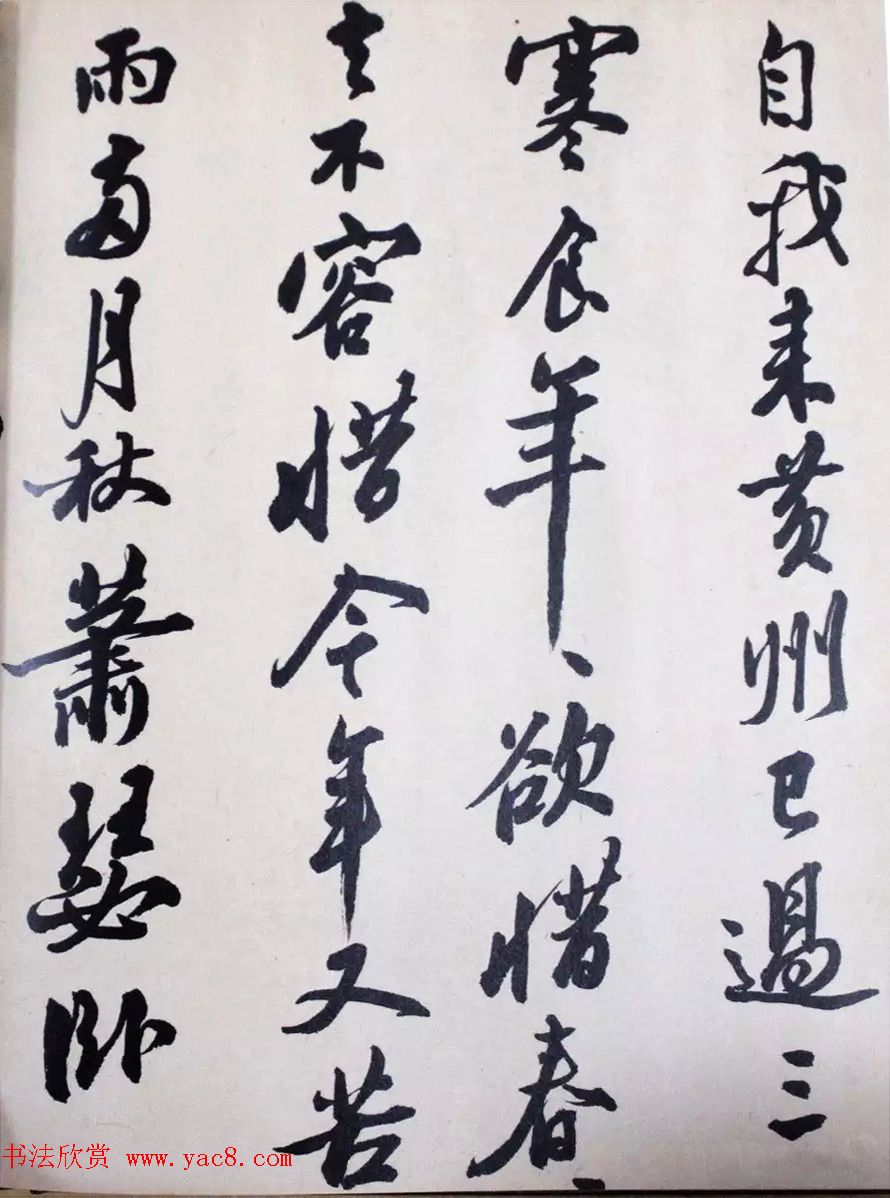 自我来黄州已過三
寒食年、欲惜春、
去不容惜今年又苦
雨两月秋蕭瑟卧
书法欣赏 www.yac8.com